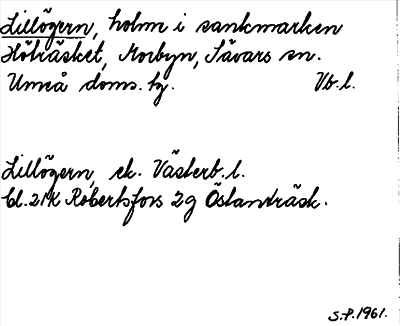 Lillögern, holm i sankmarken
Hötträsket, Morbyn, Sävars sn.
Umeå doms. tg. Vb.l.
Lillögern, ek. Västerb.l.
bl. 21K Robertsfors 2g Östanträsk.
S.P.1961.